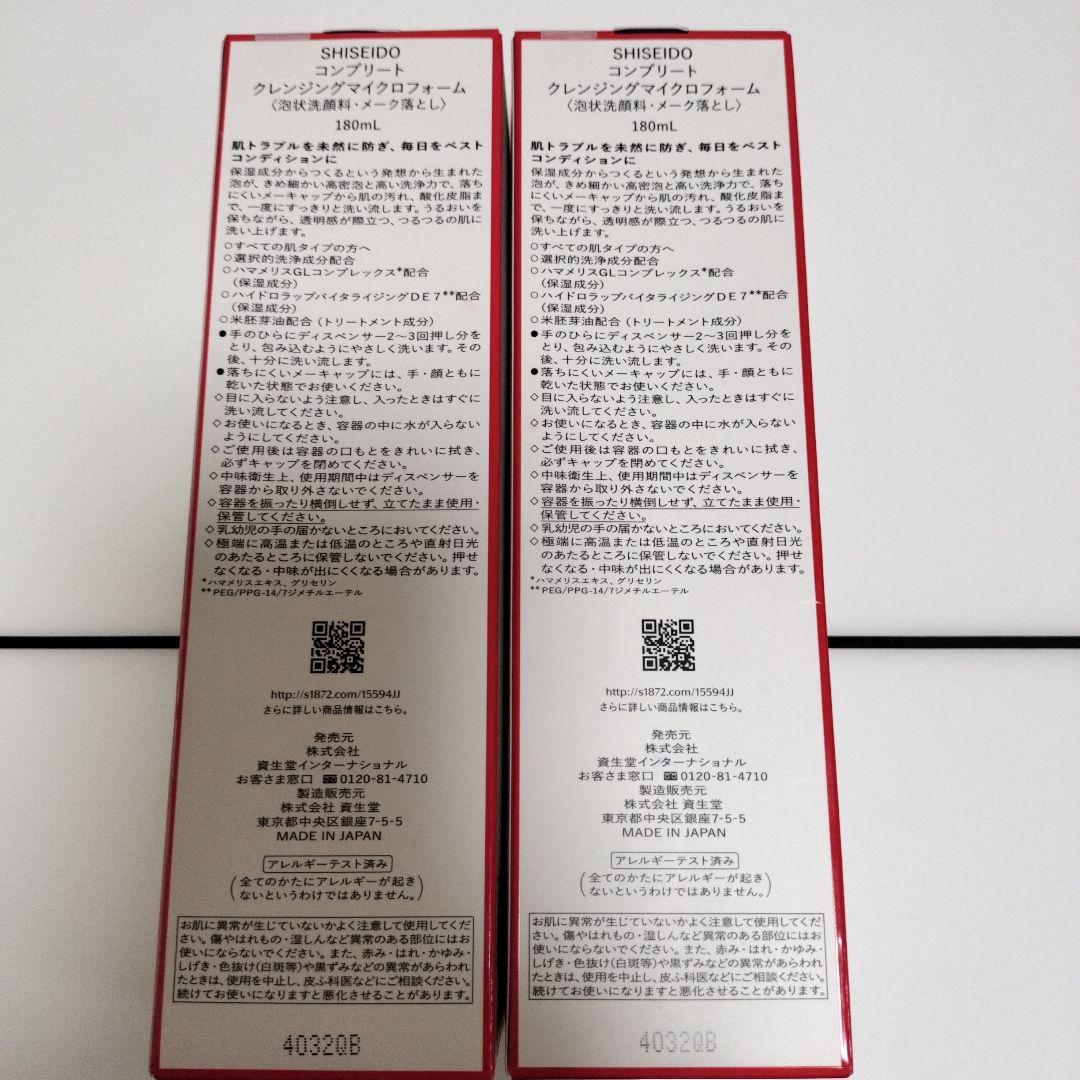 SHISEIDO
コンプリート
クレンジングマイクロフォーム
〈泡状洗顔料・メーク落とし〉
180mL
肌トラブルを未然に防ぎ、毎日をベスト
コンディションに
保湿成分からつくるという発想から生まれた
泡が、きめ細かい高密泡と高い洗浄力で、落ち
にくいメーキャップから肌の汚れ、酸化皮脂ま
で、一度にすっきりと洗い流します。うるおいを
保ちながら、透明感が際立つ、つるつるの肌に
洗い上げます。
○すべての肌タイプの方へ
○選択的洗浄成分配合
○ハマメリスGLコンプレックス*配合
（保湿成分）
○ハイドロラップバイタライジングDE7**配合
（保湿成分）
○米胚芽油配合（トリートメント成分）
●手のひらにディスペンサー2〜3回押し分を
とり、包み込むようにやさしく洗います。その
後、十分に洗い流します。
●落ちにくいメーキャップには、手・顔ともに
乾いた状態でお使いください。
◇目に入らないよう注意し、入ったときはすぐに
洗い流してください。
◇お使いになるとき、容器の中に水が入らない
ようにしてください。
◇ご使用後は容器の口もとをきれいに拭き、
必ずキャップを閉めてください。
◇中味衛生上、使用期間中はディスペンサーを
容器から取り外さないでください。
◇容器を振ったり横倒しせず、立てたまま使用・
保管してください。
◇乳幼児の手の届かないところにおいてください。
◇極端に高温または低温のところや直射日光
のあたるところに保管しないでください。押せ
なくなる・中味が出にくくなる場合があります。
*ハマメリスエキス、グリセリン
**PEG/PPG-14/7ジメチルエーテル
http://s1872.com/15594JJ
さらに詳しい商品情報はこちら。
発売元
株式会社
資生堂インターナショナル
お客さま窓口 0120-81-4710
製造販売元
株式会社 資生堂
東京都中央区銀座7-5-5
MADE IN JAPAN
アレルギーテスト済み
（全てのかたにアレルギーが起き
ないというわけではありません。）
お肌に異常が生じていないかよく注意して使用してくだ
さい。傷やはれもの・湿しんなど異常のある部位にはお
使いにならないでください。また、赤み・はれ・かゆみ・
しげき・色抜け(白斑等)や黒ずみなどの異常があらわれ
たときは、使用を中止し、皮ふ科医などにご相談ください。
続けてお使いになりますと悪化させることがあります。
4032QB
SHISEIDO
コンプリート
クレンジングマイクロフォーム
〈泡状洗顔料・メーク落とし〉
180mL
肌トラブルを未然に防ぎ、毎日をベスト
コンディションに
保湿成分からつくるという発想から生まれた
泡が、きめ細かい高密泡と高い洗浄力で、落ち
にくいメーキャップから肌の汚れ、酸化皮脂ま
で、一度にすっきりと洗い流します。うるおいを
保ちながら、透明感が際立つ、つるつるの肌に
洗い上げます。
○すべての肌タイプの方へ
○選択的洗浄成分配合
○ハマメリスGLコンプレックス*配合
（保湿成分）
○ハイドロラップバイタライジングDE7**配合
（保湿成分）
○米胚芽油配合（トリートメント成分）
●手のひらにディスペンサー2〜3回押し分を
とり、包み込むようにやさしく洗います。その
後、十分に洗い流します。
●落ちにくいメーキャップには、手・顔ともに
乾いた状態でお使いください。
◇目に入らないよう注意し、入ったときはすぐに
洗い流してください。
◇お使いになるとき、容器の中に水が入らない
ようにしてください。
◇ご使用後は容器の口もとをきれいに拭き、
必ずキャップを閉めてください。
◇中味衛生上、使用期間中はディスペンサーを
容器から取り外さないでください。
◇容器を振ったり横倒しせず、立てたまま使用・
保管してください。
◇乳幼児の手の届かないところにおいてください。
◇極端に高温または低温のところや直射日光
のあたるところに保管しないでください。押せ
なくなる・中味が出にくくなる場合があります。
*ハマメリスエキス、グリセリン
**PEG/PPG-14/7ジメチルエーテル
http://s1872.com/15594JJ
さらに詳しい商品情報はこちら。
発売元
株式会社
資生堂インターナショナル
お客さま窓口 0120-81-4710
製造販売元
株式会社 資生堂
東京都中央区銀座7-5-5
MADE IN JAPAN
アレルギーテスト済み
（全てのかたにアレルギーが起き
ないというわけではありません。）
お肌に異常が生じていないかよく注意して使用してくだ
さい。傷やはれもの・湿しんなど異常のある部位にはお
使いにならないでください。また、赤み・はれ・かゆみ・
しげき・色抜け(白斑等)や黒ずみなどの異常があらわれ
たときは、使用を中止し、皮ふ科医などにご相談ください。
続けてお使いになりますと悪化させることがあります。
4032QB